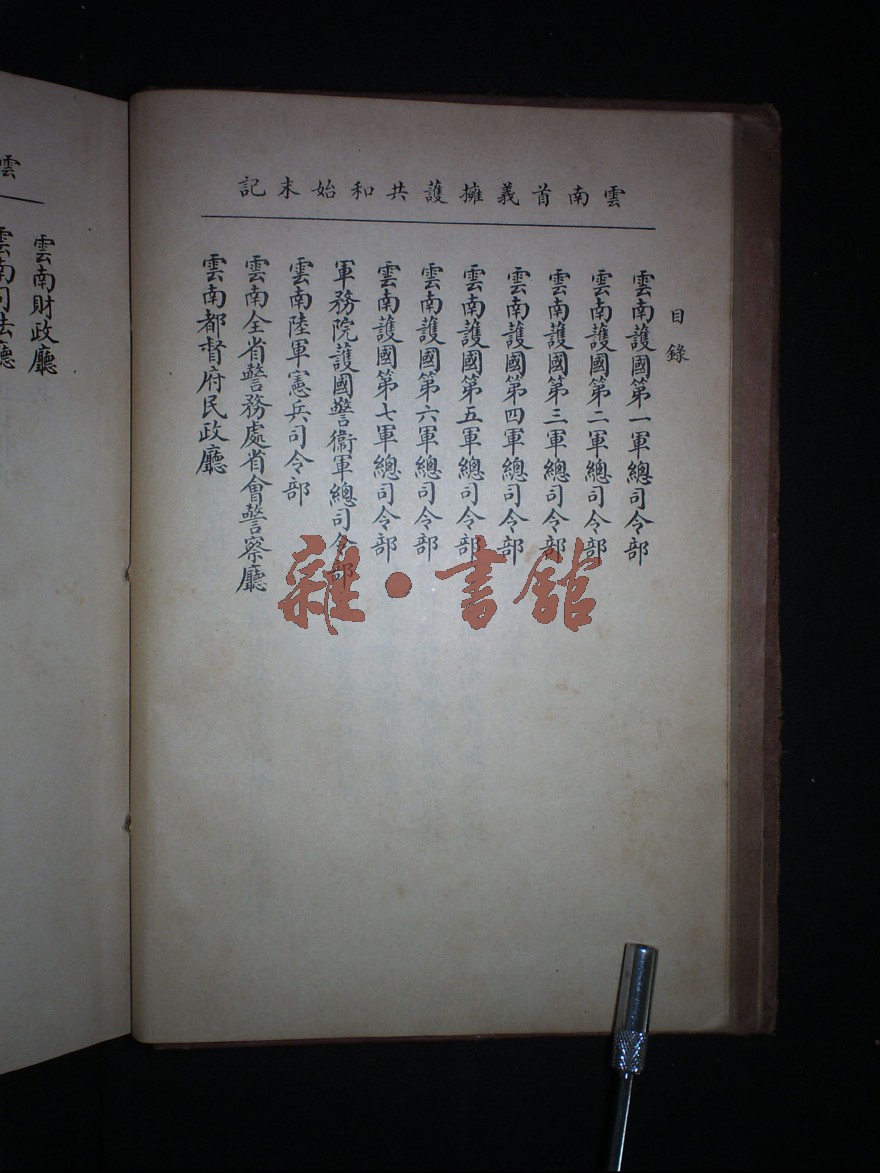 雲南首義擁護共和始末記
目錄
雲南護國第一軍總司令部
雲南護國第二軍總司令部
雲南護國第三軍總司令部
雲南護國第四軍總司令部
雲南護國第五軍總司令部
雲南護國第六軍總司令部
雲南護國第七軍總司令部
軍務院護國警衞軍總司令部
雲南陸軍憲兵司令部
雲南全省警務處省會警察廳
雲南都督府民政廳
雲
雲南財政廳
雲南司法廳
雜·書館